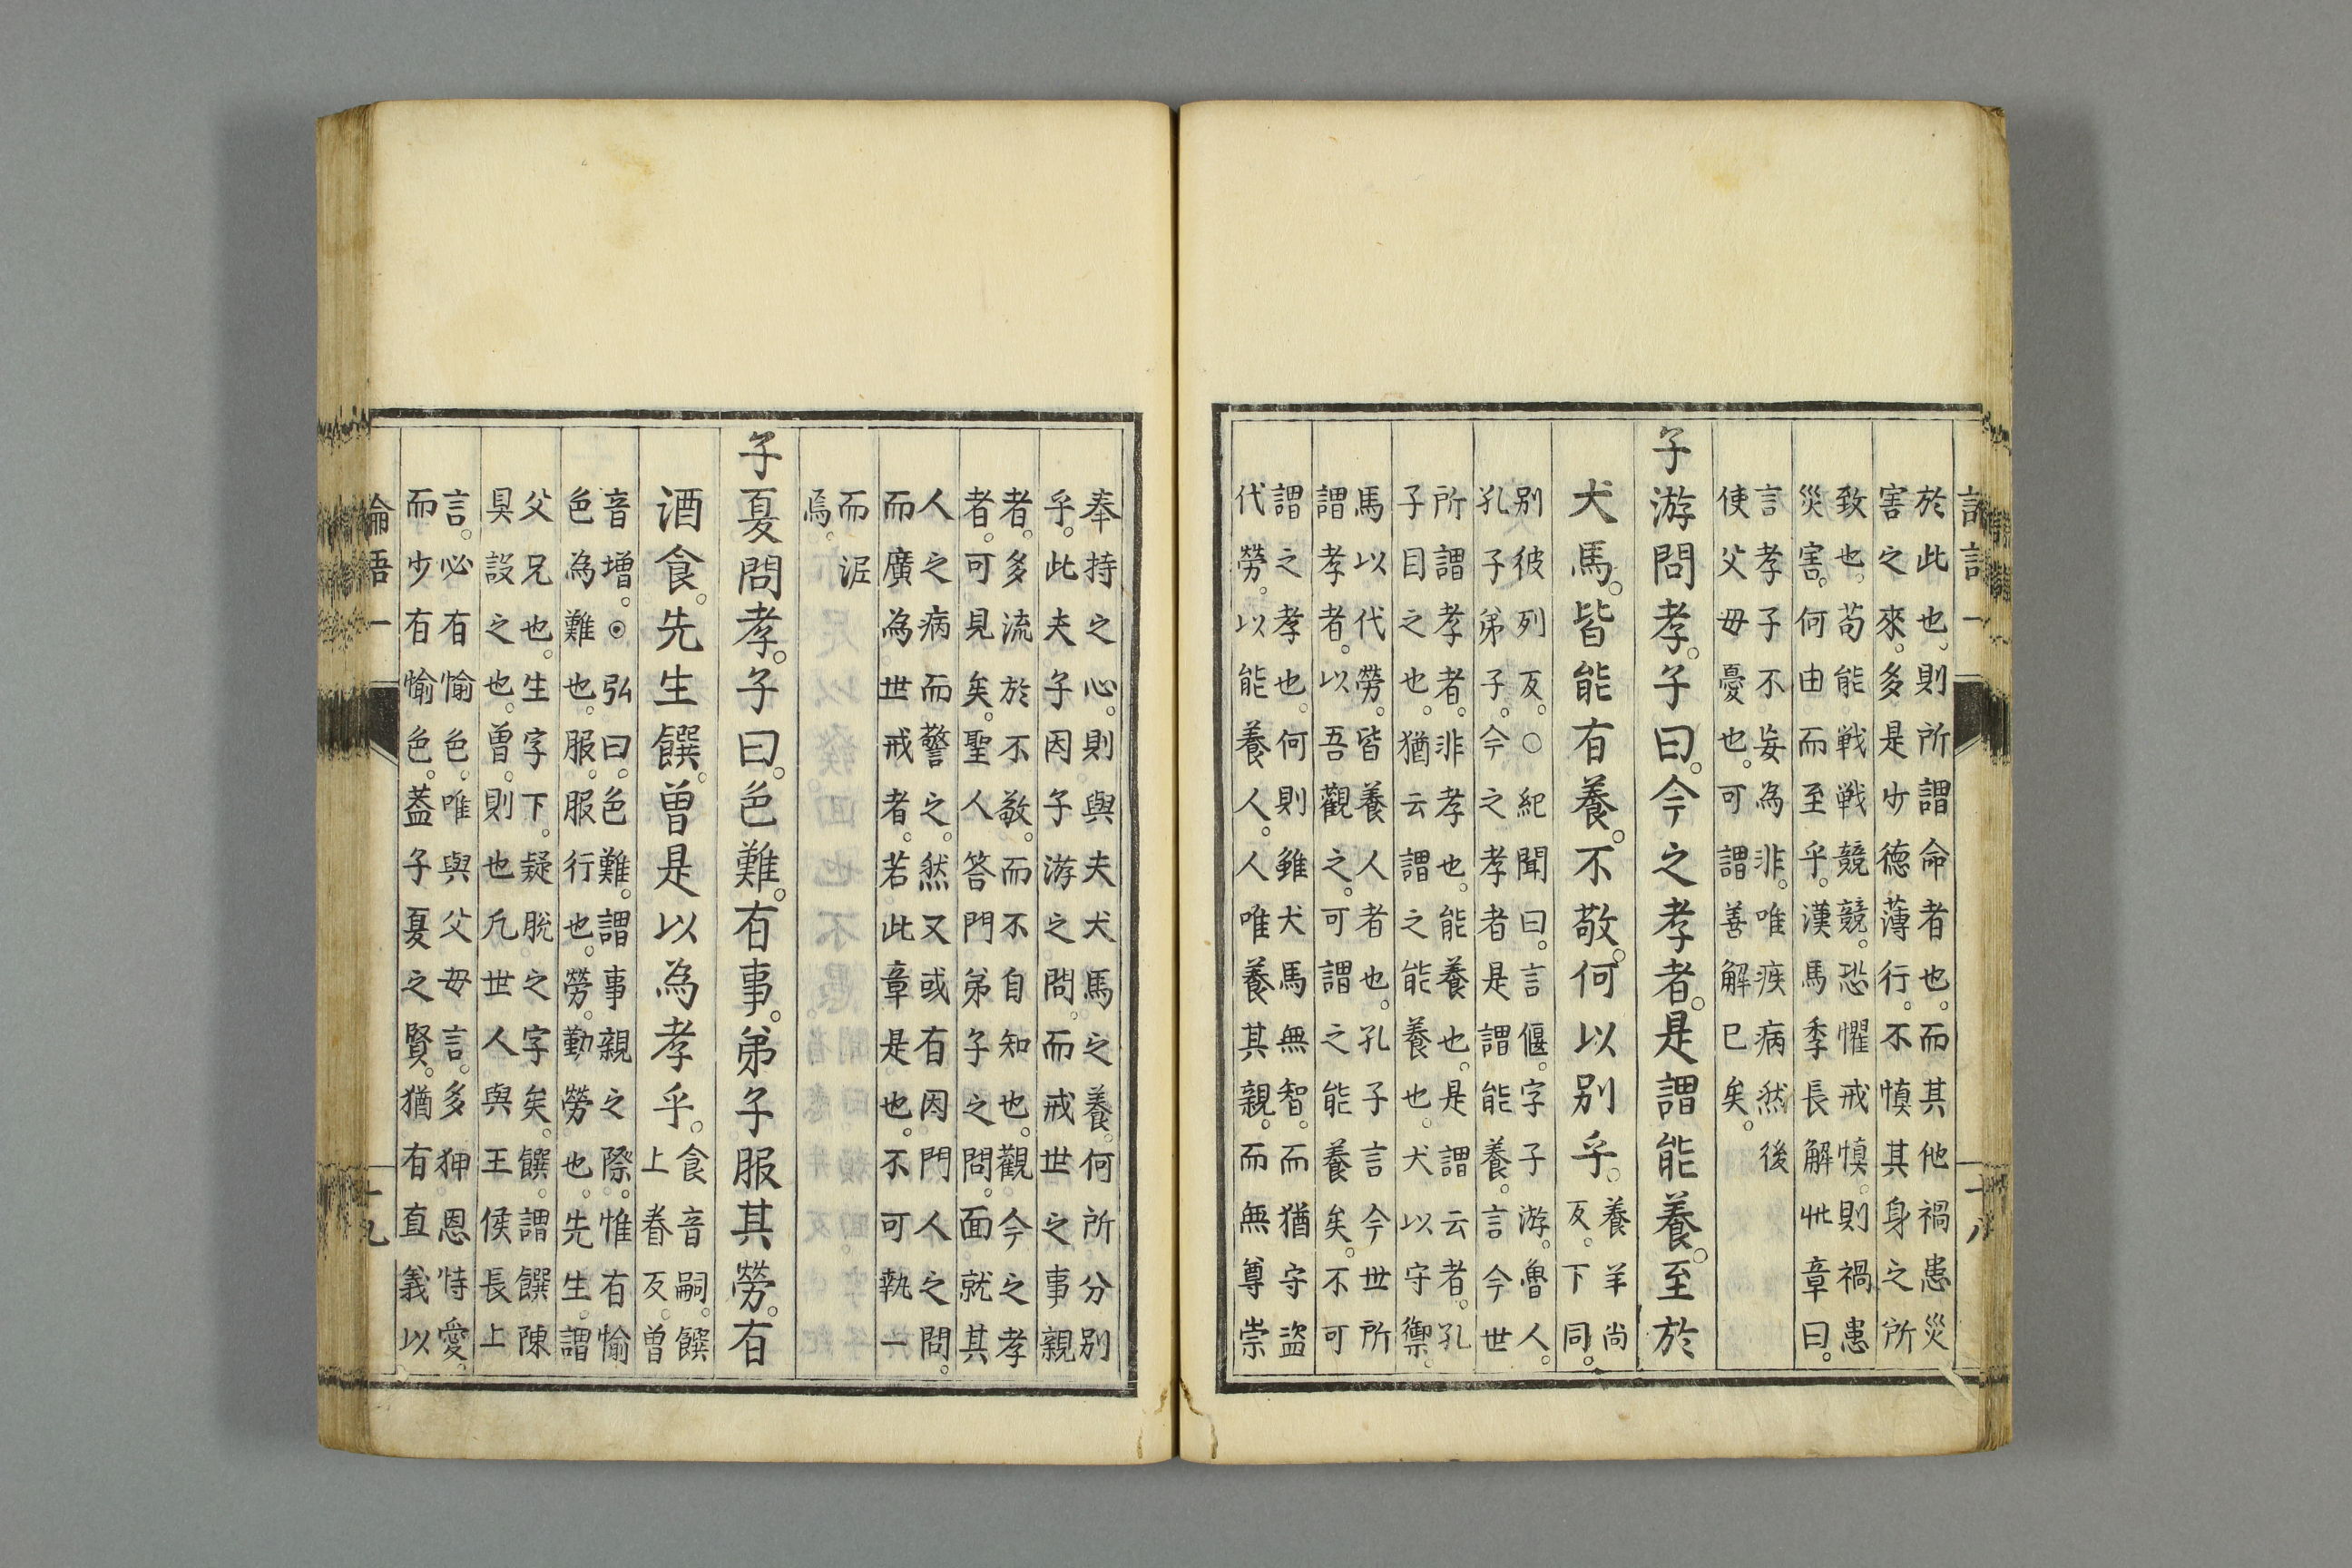 於此也。則所謂命者也。而其他禍患災
害之來。多是少德薄行。不慎其身之所
致也。苟能戦戦競競。恐懼戒慎。則禍患
災害。何由而至乎。漢馬季長解此章曰。
言孝子不妄為非。唯疾病然後
使父毋憂也。可謂善解已矣。
子游問孝。子曰。今之孝者。是謂能養。至於
犬馬。皆能有養。不敬。何以别乎。
養羊尚
反。下同。
别彼列反。○紀聞曰。言偃。字子游。魯人。
孔子弟子。今之孝者是謂能養。言今世
所謂孝者。非孝也。能養也。是謂云者。孔
子目之也。猶云謂之能養也。犬以守禦。
馬以代勞。皆養人者也。孔子言今世所
謂孝者。以吾觀之。可謂之能養矣。不可
謂之孝也。何則雖犬馬無智。而猶守盗
代勞。以能養人。人唯養其親。而無尊崇
奉持之心。則與夫犬馬之養。何所分别
乎。此夫子因子游之問。而戒世之事親
者。多流於不敬。而不自知也。觀今之孝
者。可見矣。聖人答門弟子之問。面就其
人之病而警之。然又或有因門人之問。
而廣為世戒者。若此章是也。不可執一
而泥
焉。
子夏問孝。子曰。色難。有事。弟子服其勞。有
酒食。先生饌。曽是以為孝乎。
食音嗣。饌
上眷反。曽
音増。◉弘曰。色難。謂事親之際。惟有愉
色為難也。服。服行也。勞。勤勞也。先生。謂
父兄也。生字下。疑脱之字矣。饌。謂饌陳
具設之也。曽。則也凡世人與王侯長上
言。必有愉色。唯與父毋言。多狎恩恃愛。
而少有愉色。葢子夏之賢。猶有直義以
論語一
十九
十八